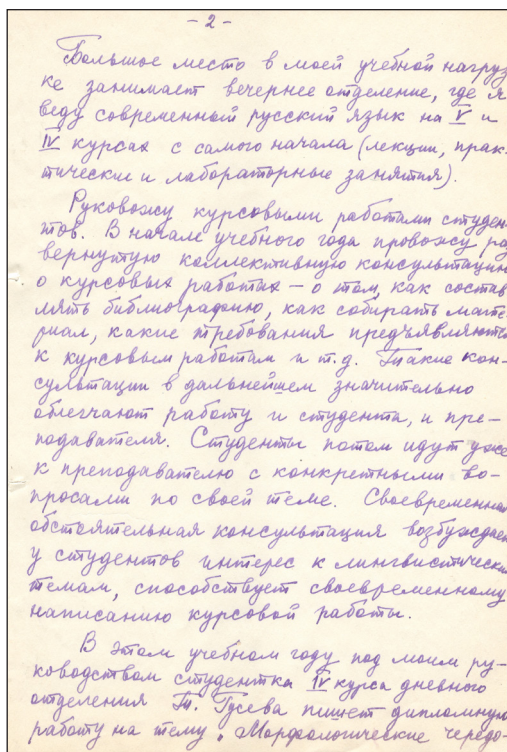 -2-
Большое место в моей учебной нагруз
ке занимает вечернее отделение, где я
веду современный русский язык на V и
IV курсах с самого начала (лекции, прак-
тические и лабораторные занятия).
Руковожу курсовыми работами студен
тов. В начале учебного года провожу ра
вернутую коллективную консультацию
о курсовых работах – о том, как состав
лять библиографию, как собирать мате
риал, какие требования предъявляются
к курсовым работам и т.д. Такие кон-
сультации в дальнейшем значительно
облегчают работу и студента, и пре-
подавателя. Студенты потом идут уже
к преподавателю с конкретными во-
просами по своей теме. Своевременная
обстоятельная консультация возбуждает
у студентов интерес к лингвистически
темам, способствует своевременному
написанию курсовой работы.
В этом учебном году под моим ру-
ководством студентка IV курса дневного
отделения Т. Гусева пишет дипломную
работу на тему „Морфологические чередо-